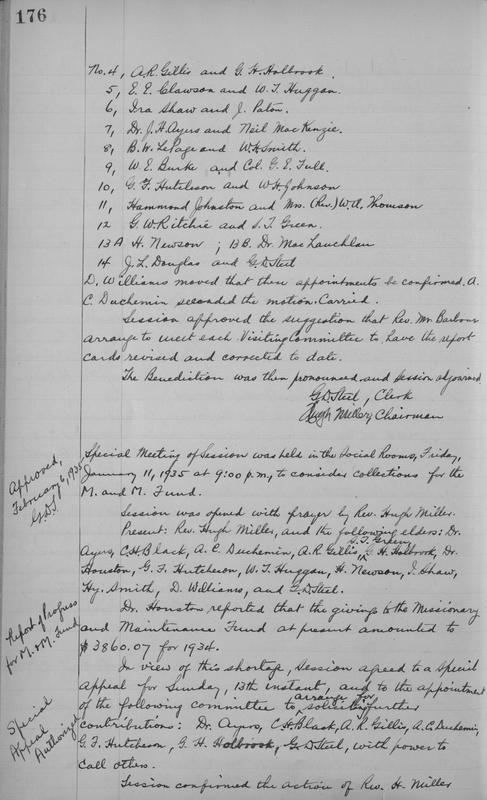 176
No. 4, A.R. Gillis and G. H. Holbrook.
5, E. E. Clawson and W. T. Huggan.
6, Ira Shaw and J. Paton.
7, Dr. J. H. Ayers and Neil MacKenzie.
8, B. W. LePage and W. H. Smith.
9, W. E. Burke and Col. G. E. Full.
10, G. F. Hutcheson and W. H. Johnson
11, Hammond Johnston and Mrs. (Rev.) W. A. Thomson
12 G. W. Ritchie and S. T. Green.
13 A H. Newson ; 13 B. Dr. MacLauchlan
14 J. L. Douglas and G. D. Steel
D. Williams moved that these appointments be confirmed. A.
C. Duchemin seconded the motion. Carried.
Session approved the suggestion that Rev. Mr. Barbour
arrange to meet each Visiting Committee to have the report
cards revised and corrected to date.
The Benediction was then pronounced and session adjourned.
G. D. Steel, Clerk
Hugh Miller, Chairman
Approved,
February 6, 1935
G.D.S.
Special Meeting of Session was held in the Social Rooms, Friday,
January 11, 1935 at 9:00 p.m., to consider collections for the
M. and M. Fund.
Session was opened with prayer by Rev. Hugh Miller.
Present: Rev. Hugh Miller, and the following elders: Dr.
S. T. Green,
Ayers, C. H. Black, A. C. Duchemin, A. R. Gillis, G. H. Holbrook, Dr.
Houston, G. F. Hutcheson, W. T. Huggan, H. Newson, I. Shaw,
Hy. Smith, D. Williams, and G. D. Steel.
Report of Progress
for M. & M. Fund
Dr. Houston reported that the givings to the Missionary
and Maintenance Fund at present amounted to
$3860.07 for 1934.
Special
Appeal
Authorized
In view of this shortage, Session agreed to a special
appeal for Sunday, 13th instant, and to the appointment
arrange for
of the following committee to soliciting further
contributions: Dr. Ayers, C. H. Black, A. R. Gillis, A. C. Duchemin,
G. F. Hutcheson, G. H. Holbrook, G. D. Steel, with power to
call others.
Session confirmed the action of Rev. H. Miller